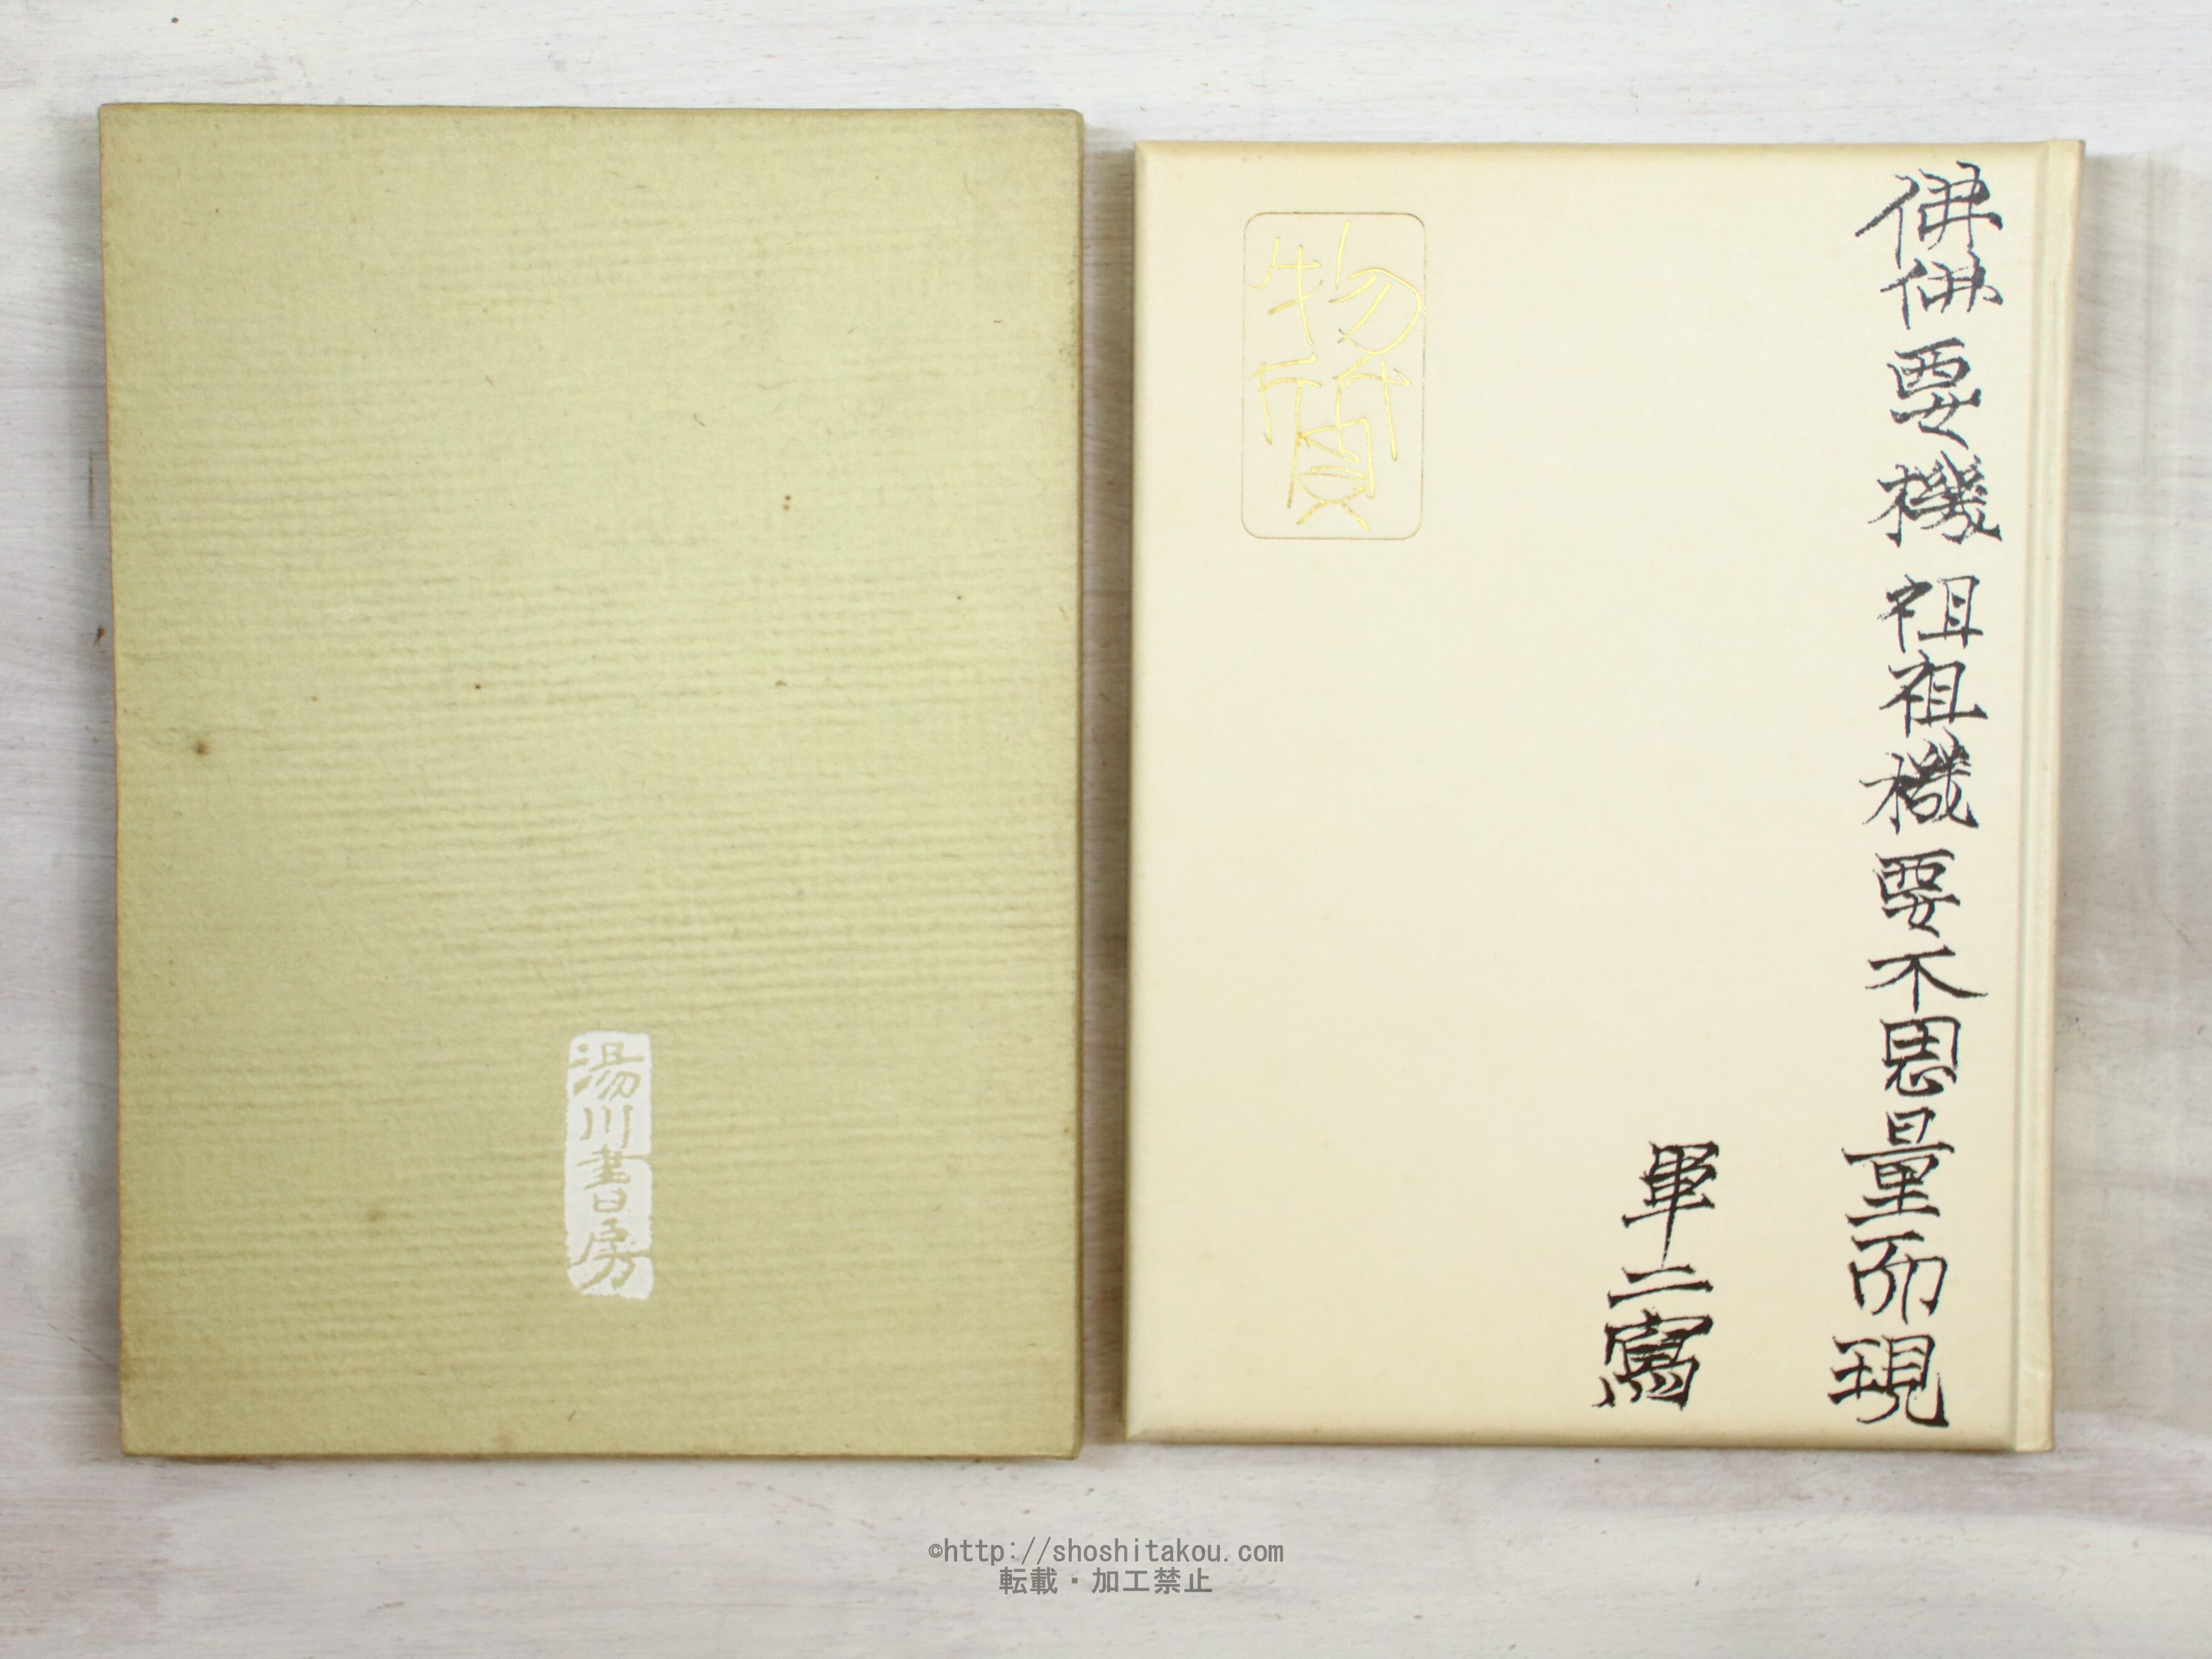 湯川書房
佛佛要機祖祖機要不思量而現
軍二寫
物質
©http://shoshitakou.com
転載・加工禁止